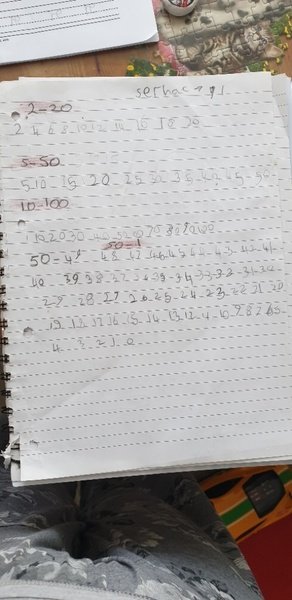 2-20
2 4 6 8 10 12 14 16 18 20
5-50
5 10 15 20 25 30 35 40 45 50
10-100
10 20 30 40 50 60 70 80 90 100
50-1
50-49 48 47 46 45 44 43 42 41
40 39 38 37 36 35 34 33 32 31 30
29 28 27 26 25 24 23 22 21 20
19 18 17 16 15 14 13 12 10 9 8 7 6 5
4 3 2 1 0